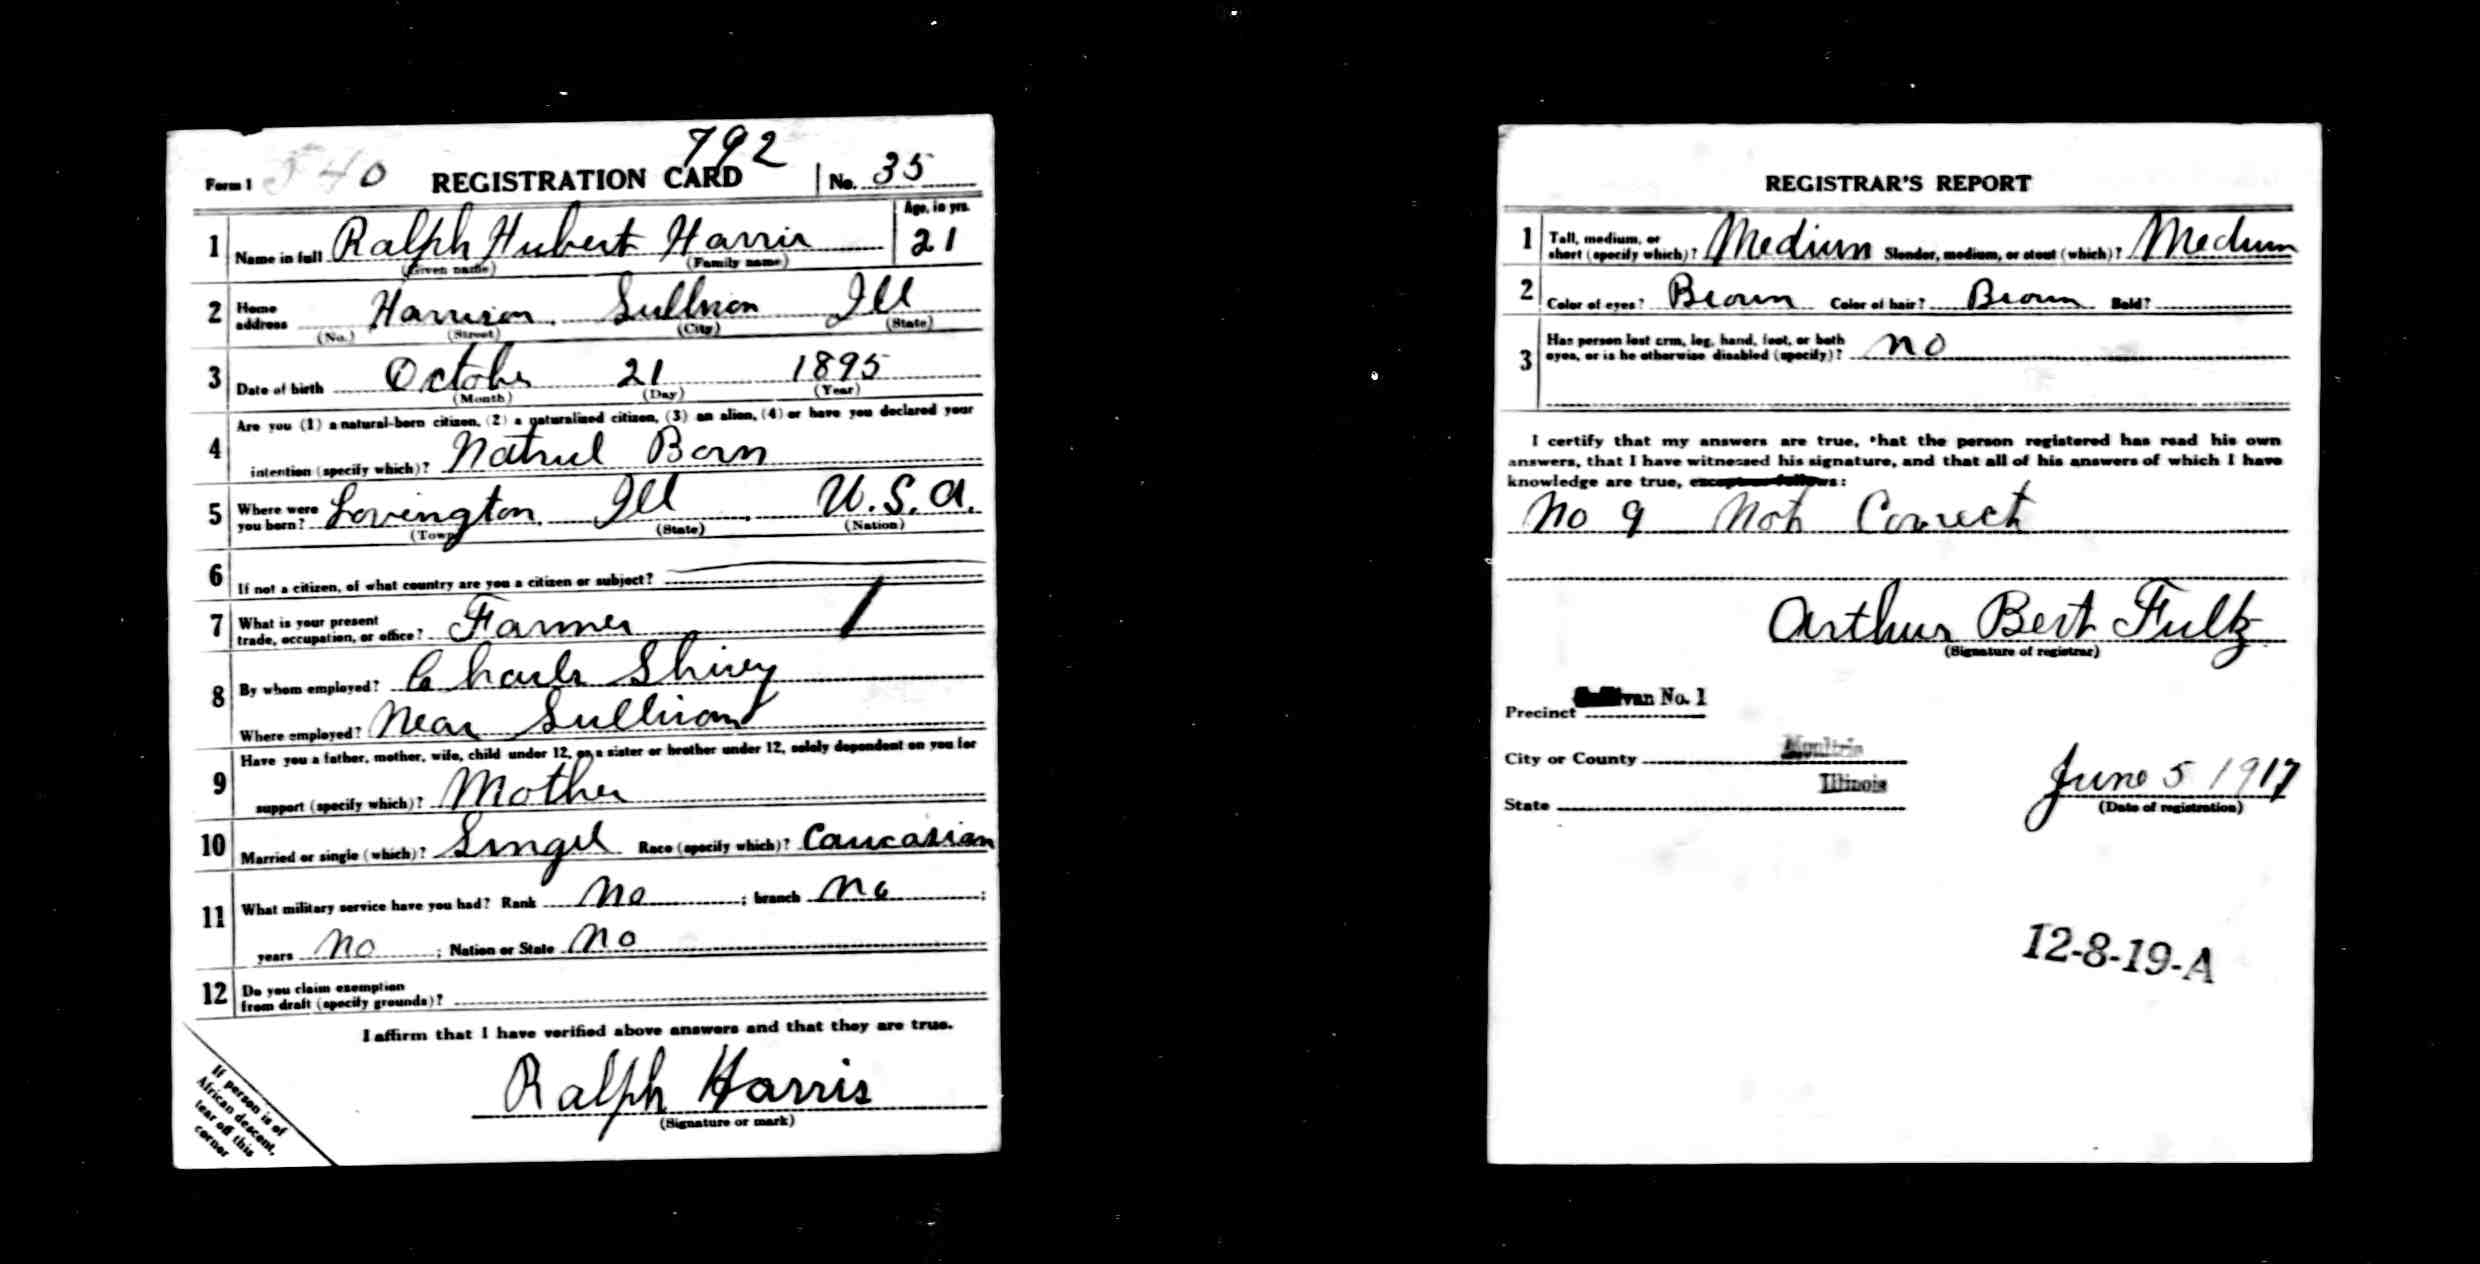 792
Form 1 540 REGISTRATION CARD No. 35
Age, in yrs.
1 Name in full Ralph Hubert Harris 21
(Given name) (Family name)
2 Home address Harrison Sullivan Ill
(No.) (Street) (City) (State)
3 Date of birth October 21 1895
(Month) (Day) (Year)
Are you (1) a natural-born citizen, (2) a naturalized citizen, (3) an alien, (4) or have you declared your
4 intention (specify which)? Natrul Born
5 Where were you born? Lovington Ill U.S.A.
(Town) (State) (Nation)
6 If not a citizen, of what country are you a citizen or subject?
7 What is your present trade, occupation, or office? Farmer
8 By whom employed? Charls Shirey
Where employed? Near Sullivan
Have you a father, mother, wife, child under 12, or a sister or brother under 12, solely dependent on you for
9 support (specify which)? Mother
10 Married or single (which)? Singel Race (specify which)? Caucasian
11 What military service have you had? Rank no ; branch no ;
years no ; Nation or State no
12 Do you claim exemption
from draft (specify grounds)?
I affirm that I have verified above answers and that they are true.
Ralph Harris
(Signature or mark)
If person is of
African descent,
tear off this
corner
REGISTRAR'S REPORT
1 Tall, medium, or
short (specify which)? Medium Slender, medium, or stout (which)? Medium
2 Color of eyes? Brown Color of hair? Brown Bald?
3 Has person lost arm, leg, hand, foot, or both
eyes, or is he otherwise disabled (specify)? no
I certify that my answers are true, that the person registered has read his own
answers, that I have witnessed his signature, and that all of his answers of which I have
knowledge are true, except as follows:
No 9 Not Correct
Arthur Bert Fultz
(Signature of registrar)
Precinct Sullivan No. 1
City or County Moultrie
State Illinois
June 5 1917
(Date of registration)
12-8-19-A